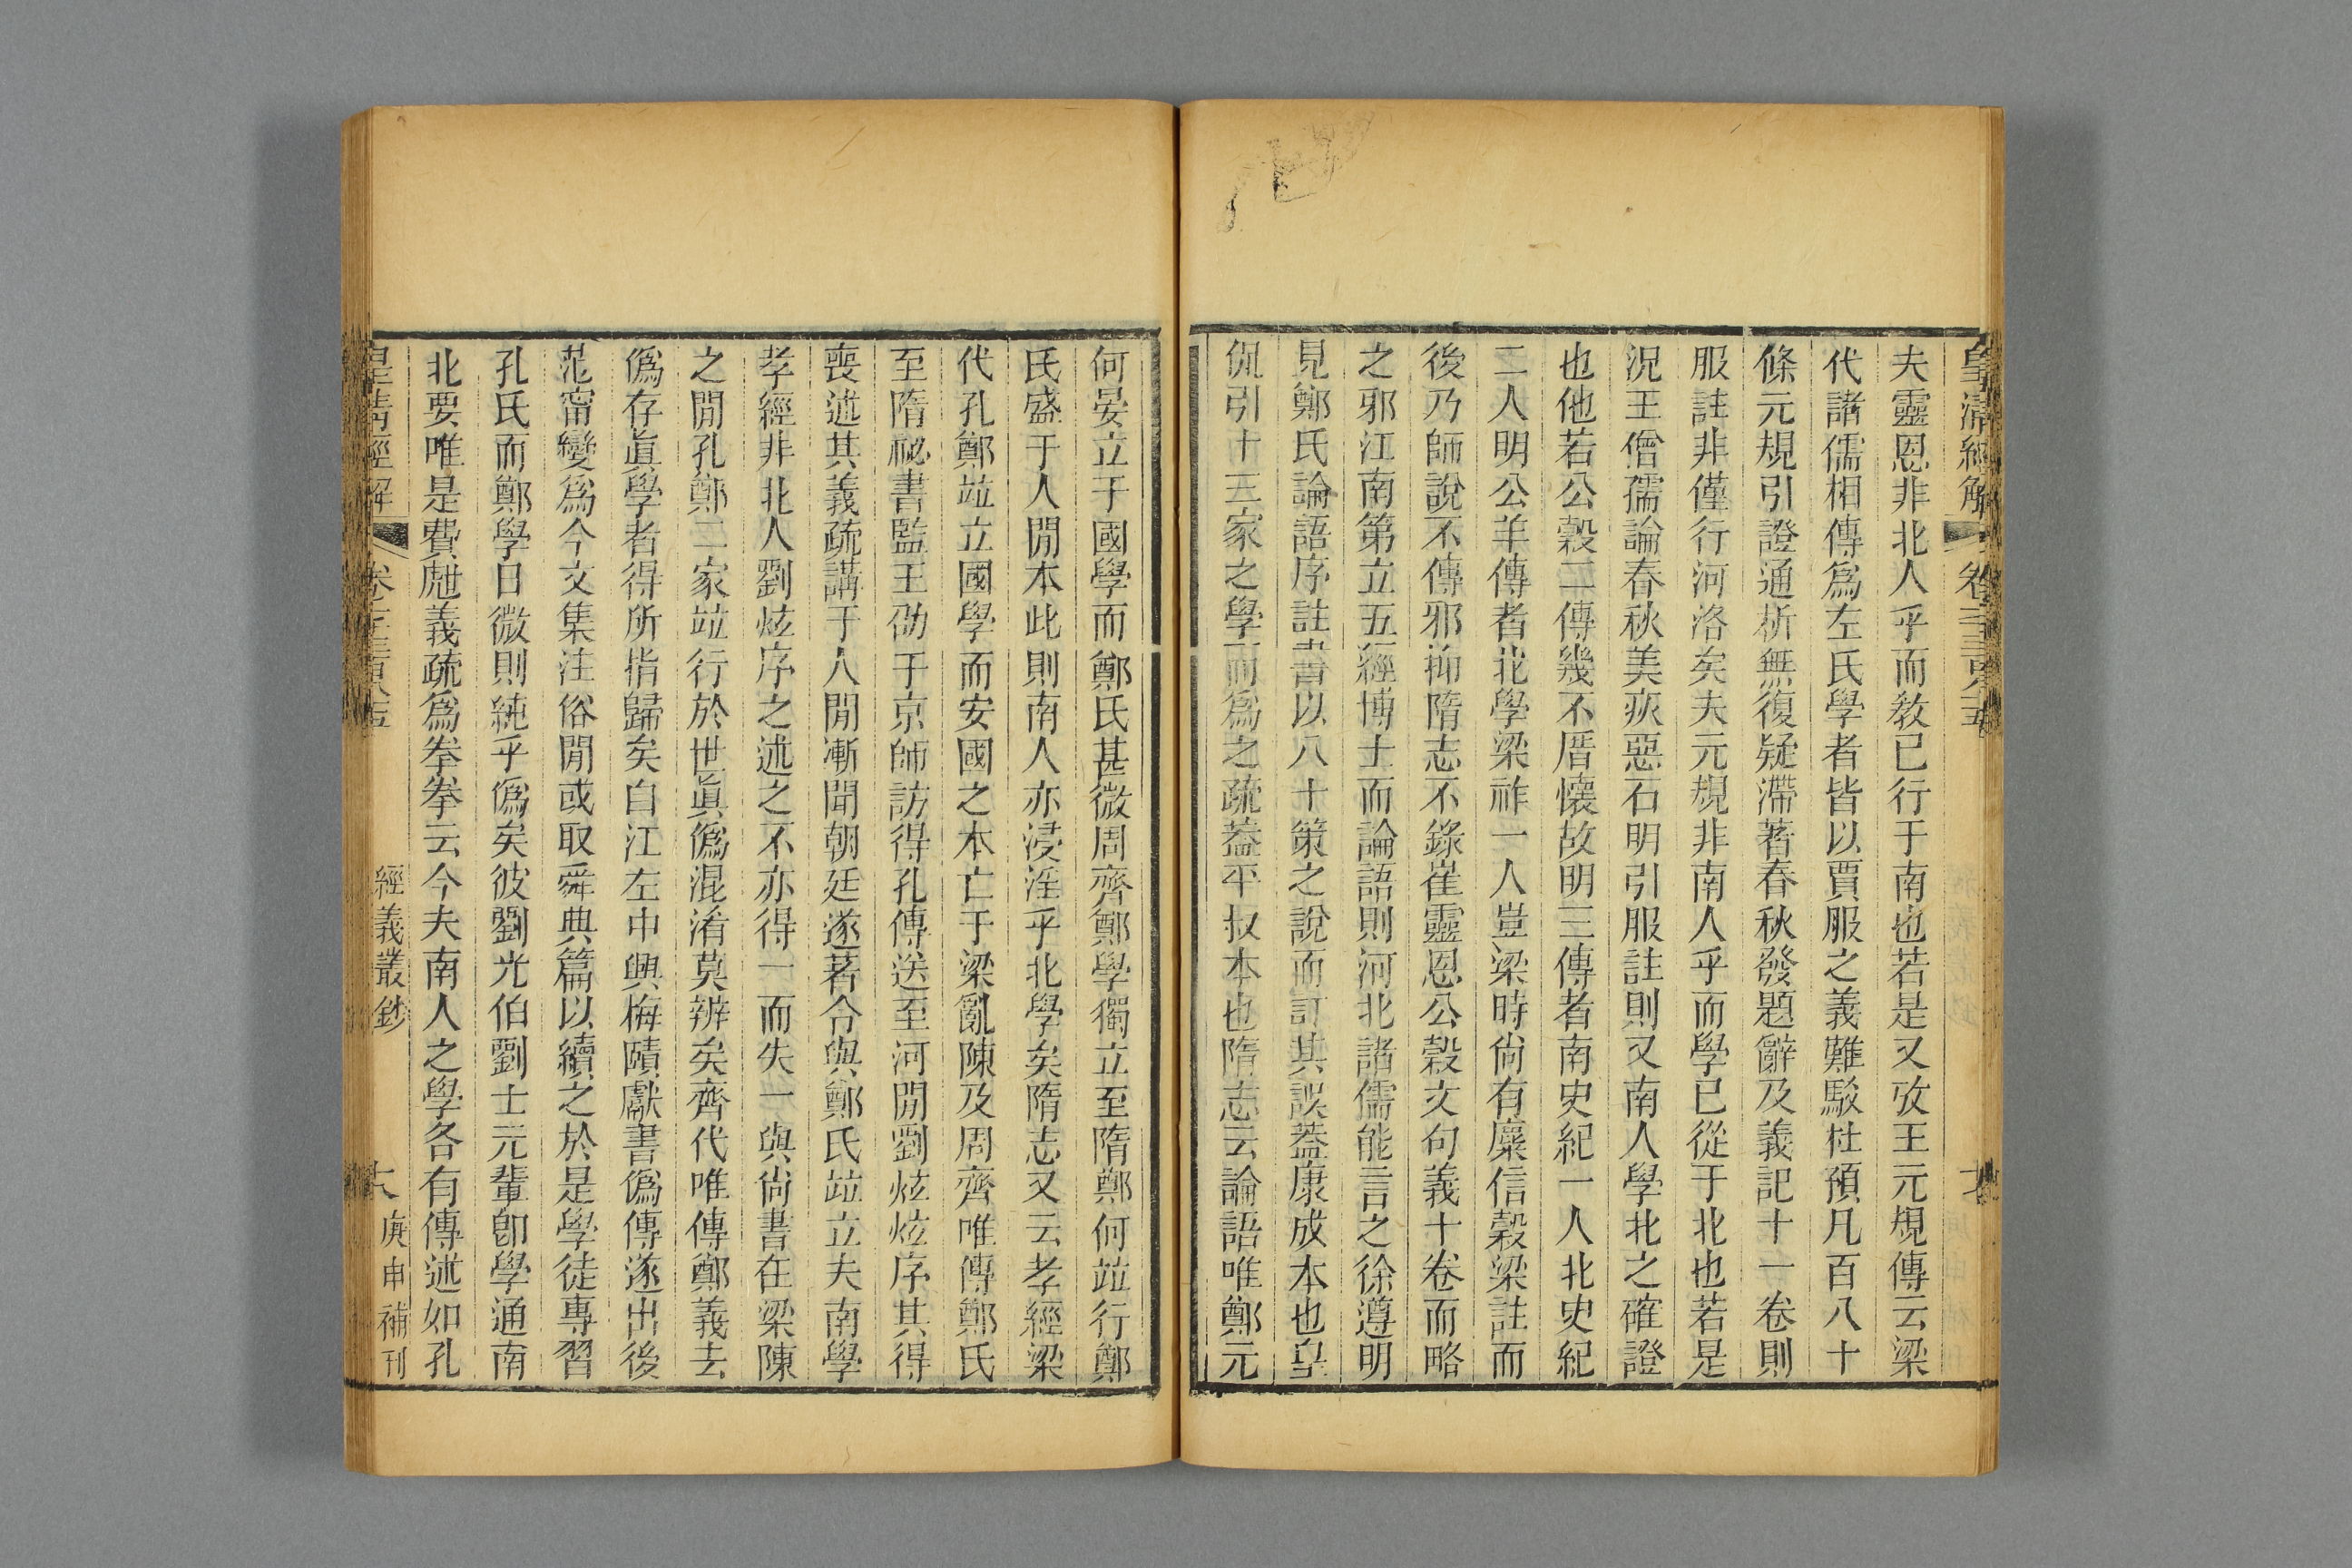 皇清經解
夫靈恩非北人乎而教已行于南也若是又攷王元規傳云梁
代諸儒相傳爲左氏學者皆以賈服之義難駁杜預凡百八十
條元規引證通析無復疑滯著春秋發題辭及義記十一卷則
服註非僅行河洛矣夫元規非南人乎而學已從于北也若是
況王僧孺論春秋美疢惡石明引服註則又南人學北之確證
也他若公穀二傳幾不厝懷故明三傳者南史紀一人北史紀
二人明公羊傳者北學梁祚一人豈梁時尙有麋信穀梁註而
後乃師說不傳邪抑隋志不錄崔靈恩公穀文句義十卷而略
之邪江南第立五經博士而論語則河北諸儒能言之徐遵明
見鄭氏論語序註書以八十策之說而訂其誤葢康成本也皇
侃引十三家之學而爲之疏葢平叔本也隋志云論語唯鄭元
何晏立于國學而鄭氏甚微周齊鄭學獨立至隋鄭何竝行鄭
氏盛于人閒本此則南人亦浸淫乎北學矣隋志又云孝經梁
代孔鄭竝立國學而安國之本亡于梁亂陳及周齊唯傳鄭氏
至隋祕書監王劭于京師訪得孔傳送至河閒劉炫炫序其得
喪述其義疏講于人閒漸聞朝廷遂著令與鄭氏竝立夫南學
孝經非北人劉炫序之述之不亦得一而失一與尙書在梁陳
之閒孔鄭二家竝行於世眞僞混淆莫辨矣齊代唯傳鄭義去
僞存眞學者得所指歸矣自江左中興梅賾獻書僞傳遂出後
范甯變爲今文集注俗閒或取舜典篇以續之於是學徒專習
孔氏而鄭學日微則純乎僞矣彼劉光伯劉士元輩卽學通南
北要唯是費甝義疏爲拳拳云今夫南人之學各有傳述如孔
皇清經解
經義叢鈔
庚申補刊